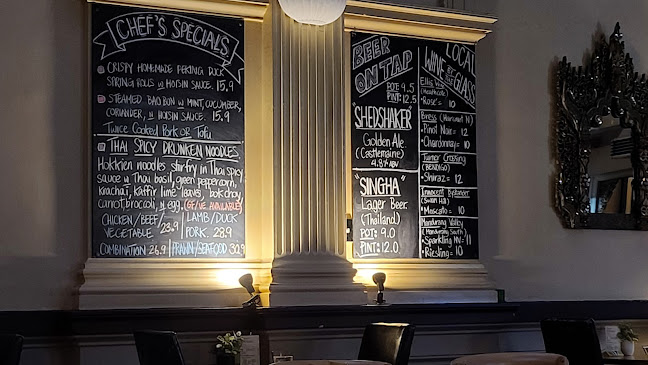 CHEF'S SPECIALS
CRISPY HOMEMADE PEKING DUCK
SPRING ROLLS w HOISIN SAUCE 15.9
STEAMED BAO BUN w MINT, CUCUMBER,
CORIANDER, w HOISIN SAUCE. 15.9
Twice Cooked Pork or Tofu
THAI SPICY DRUNKEN NOODLES
Hokkien noodles stir fry in Thai Spicy
sauce w Thai basil, green peppercorn,
krachai, kaffir lime leaves, bok choy,
carrot, broccoli, w egg. (GF/VE AVAILABLE)
CHICKEN/BEEF/
VEGETABLE
LAMB/DUCK
PORK 28.9
COMBINATION 26.9
PRAWN/SEAFOOD 30.9
BEER
ON TAP
POT 9.5
PINT: 12.5
"SHEDSHAKER"
Golden Ale
(Castlemaine)
"SINGHA"
Lager Beer
(Thailand)
POT: 9.0
PINT: 12.0
LOCAL
WINE BY THE
GLASS
(Heathcote)
Rose's = 10
Bress (Harcourt N)
Pinot Noir = 12
Chardonnay = 10
Turner Crossing
(BENDIGO)
Shiraz = 12
Innocent Bystander
(Swan Hill)
Moscato = 10
Mandurang Valley
(Mandurang South)
Sparkling NV = 11
Riesling = 10